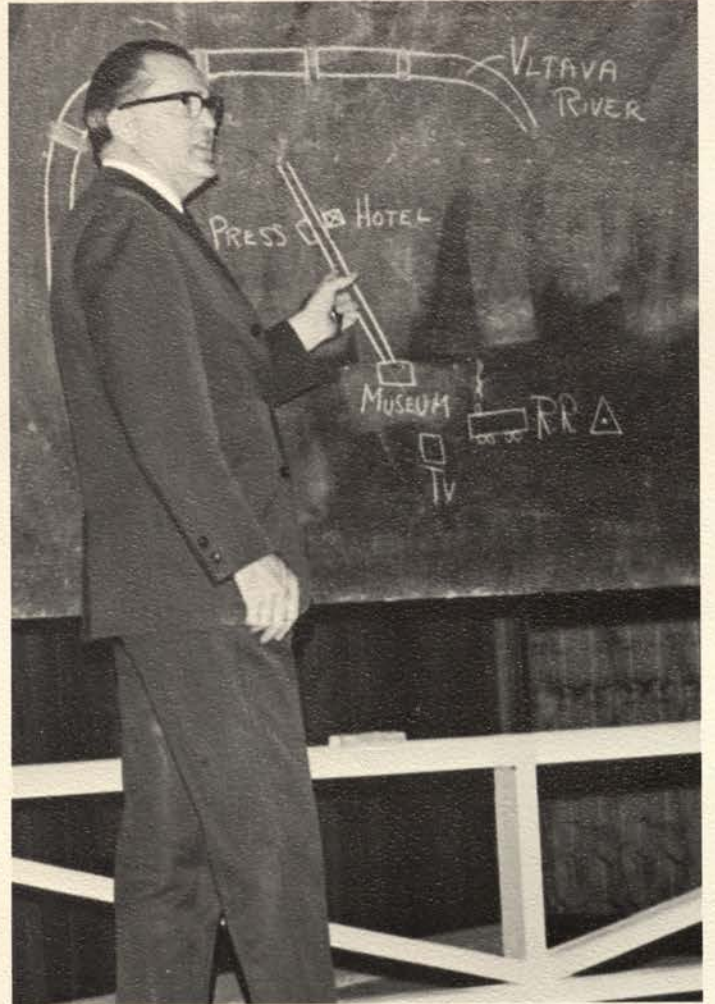 VLTAVA
RIVER
PRESS HOTEL
MUSEUM
RR
TV